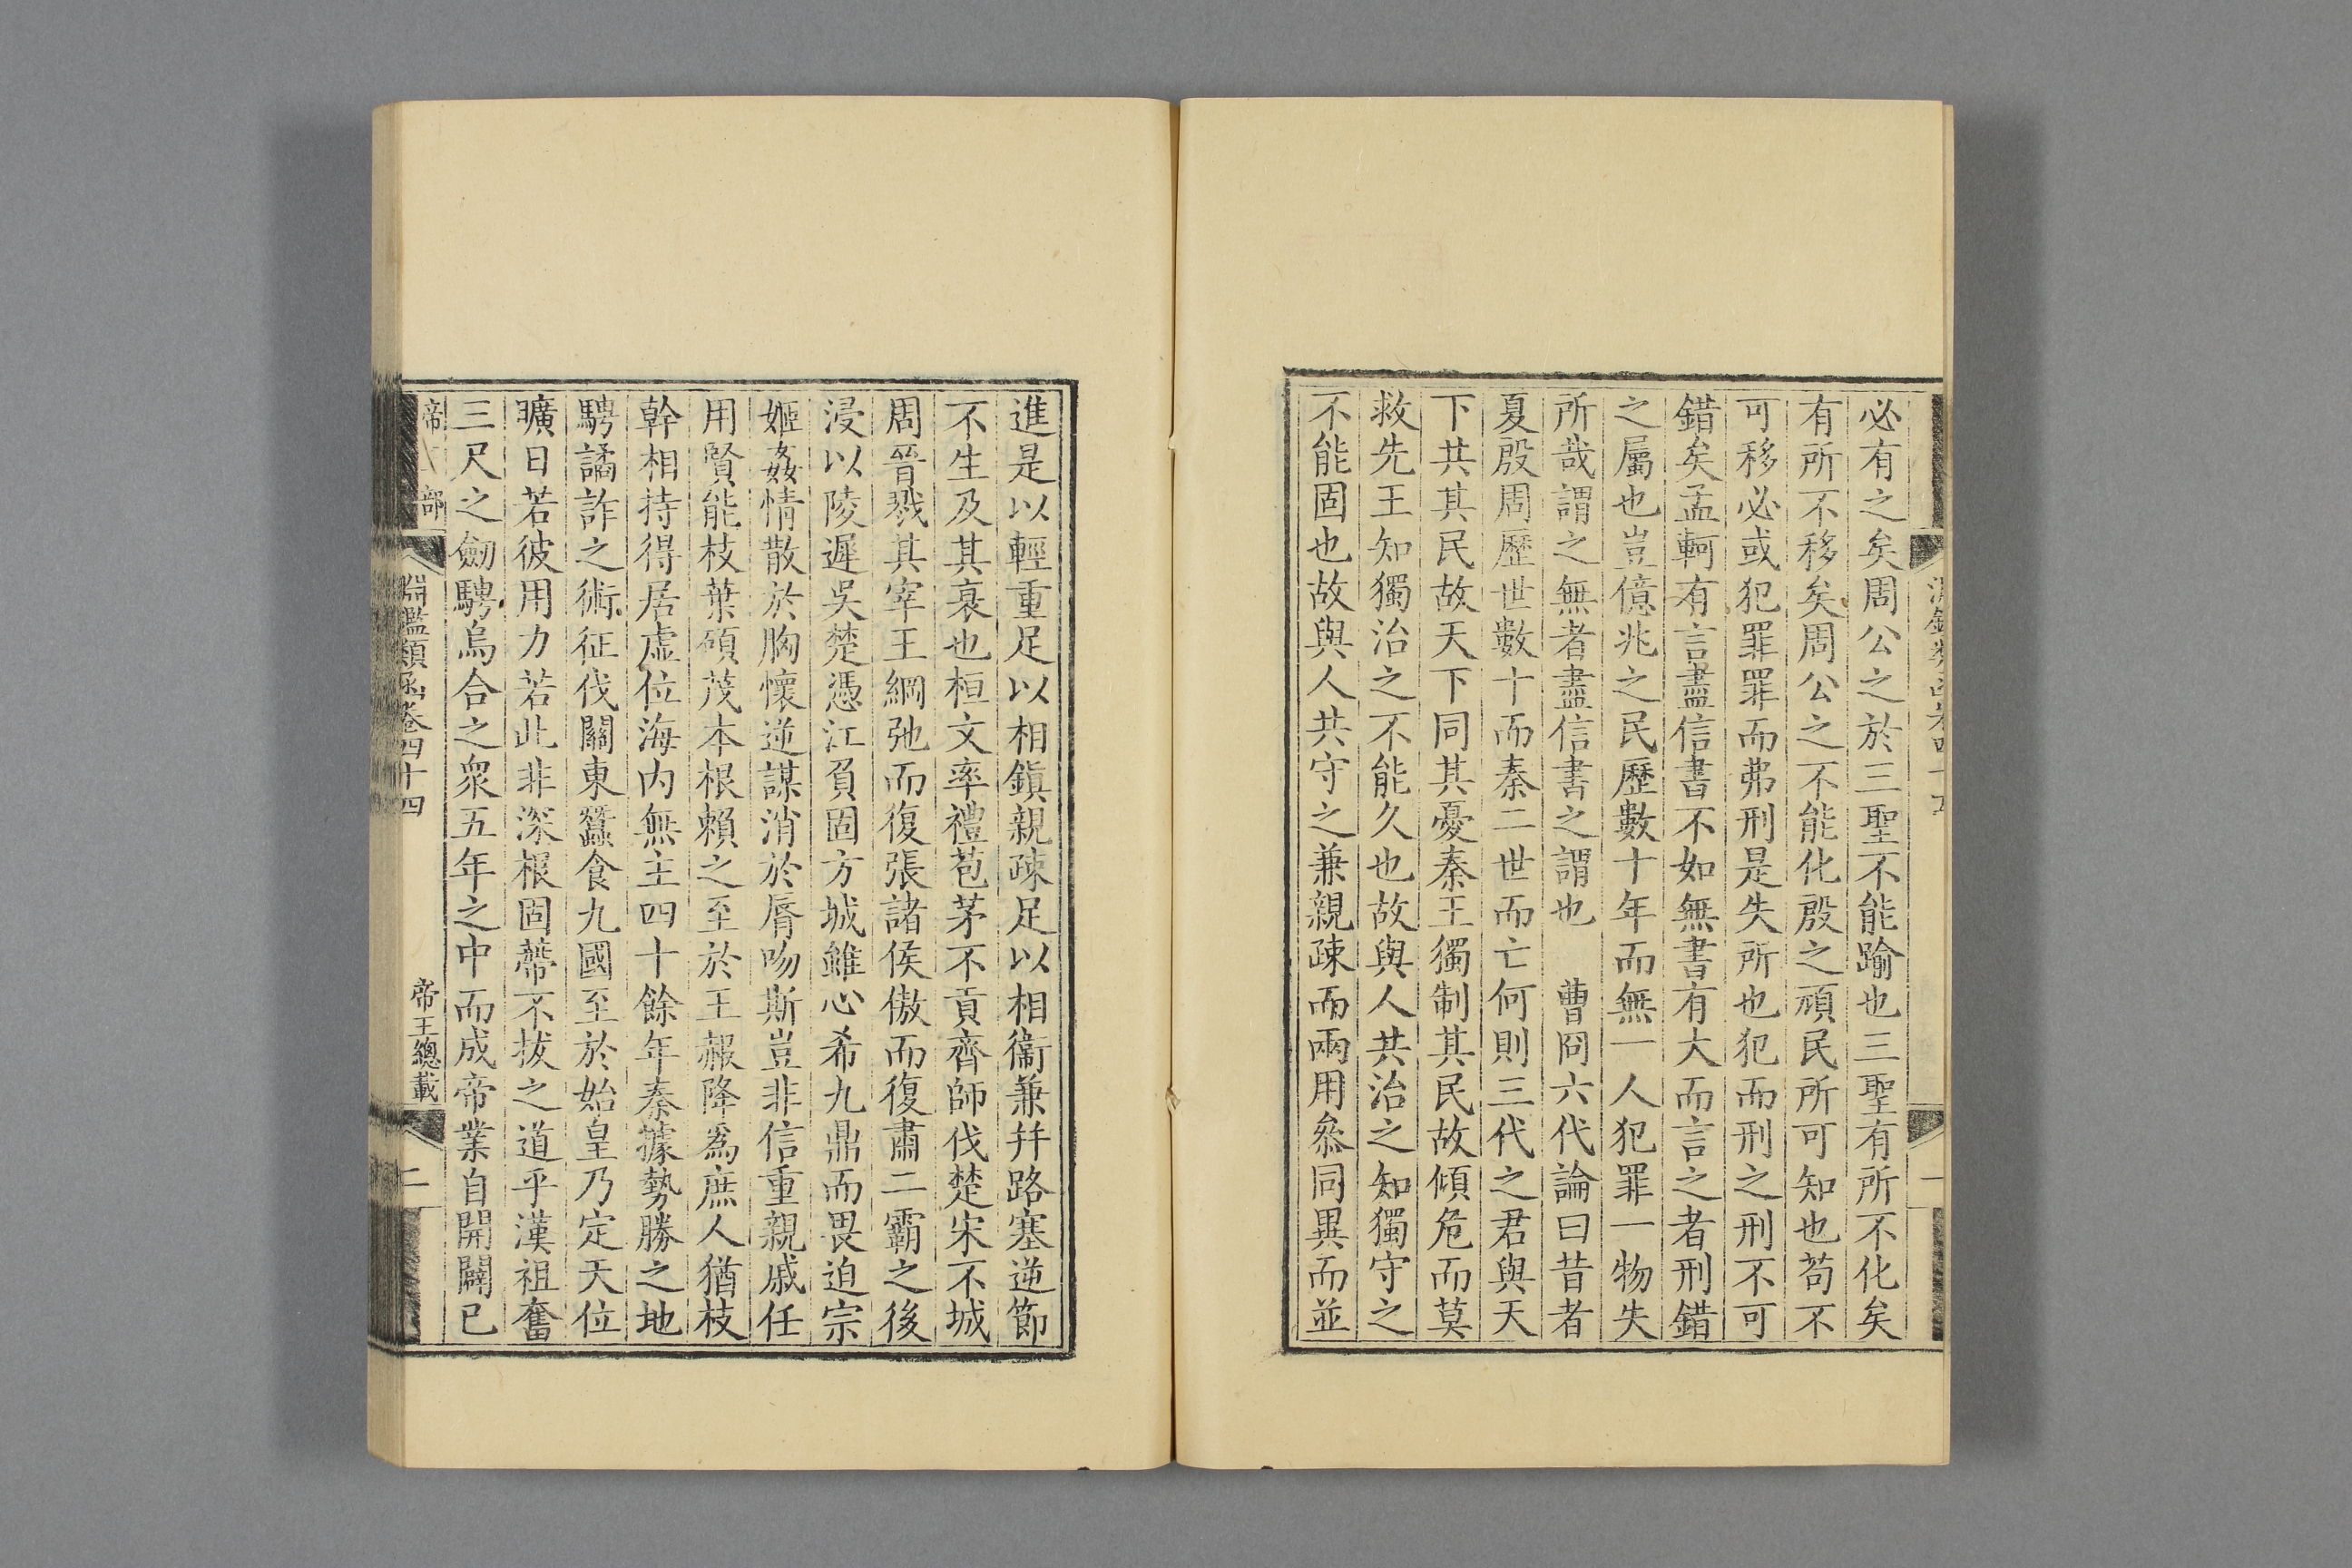 必有之矣周公之於三聖不能踰也三聖有所不化矣
有所不移矣周公之不能化殷之頑民所可知也苟不
可移必或犯罪罪而弗刑是失所也犯而刑之刑不可
錯矣孟軻有言盡信書不如無書有大而言之者刑錯
之屬也豈億兆之民歷數十年而無一人犯罪一物失
所哉謂之無者盡信書之謂也　曹冏六代論曰昔者
夏殷周歷世數十而秦二世而亡何則三代之君與天
下共其民故天下同其憂秦王獨制其民故傾危而莫
救先王知獨治之不能久也故與人共治之知獨守之
不能固也故與人共守之兼親疎而兩用叅同異而並
進是以輕重足以相鎮親疎足以相衞兼幷路塞逆節
不生及其衰也桓文率禮苞茅不貢齊師伐楚宋不城
周晉戮其宰王綱弛而復張諸侯傲而復肅二霸之後
浸以陵遲吳楚憑江負固方城雖心希九鼎而畏迫宗
姬姦情散於胸懷逆謀消於脣吻斯豈非信重親戚任
用賢能枝葉碩茂本根賴之至於王赧降爲庶人猶枝
幹相持得居虛位海内無主四十餘年秦據勢勝之地
騁譎詐之術征伐關東蠶食九國至於始皇乃定天位
曠日若彼用力若此非深根固蔕不拔之道乎漢祖奮
三尺之劒騁烏合之衆五年之中而成帝業自開闢已
帝　部
淵鑑類函卷四十四
帝王總載
二